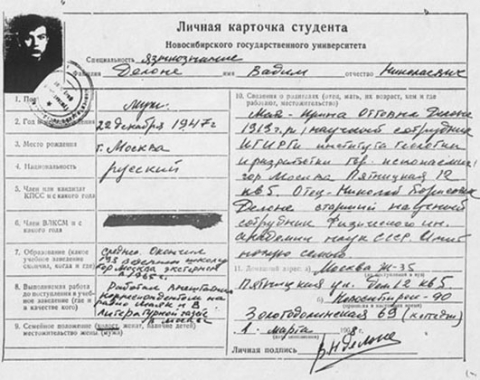 Личная карточка студента
Новосибирского государственного университета
Специальность Языкознание
Фамилия Делоне имя Вадим отчество Николаевич
1. Пол
муж.
2. Год
22 декабря 1947 г
3. Место рождения
г. Москва
4. Национальность
русский
5. Член или кандидат
КПСС и с какого года
6. Член ВЛКСМ и с
какого года
7. Образование (какое учебное
заведение окончил, когда и где)
Среднее. Окончил
г. Москва экстерном
в 1965 г.
8. Выполняемая работа
до поступления в учебное
заведение (где и
в качестве кого)
Работал внештатным
корреспондентом на
радио и в
Литературной газете
в Москве
9. Семейное положение (холост, женат, наличие детей)
местожительство жены (мужа)
10. Сведения о родителях (отец, мать, их возраст, кем и где
работают, местожительство)
Мать - Делоне
1919 г.р. научный сотрудник
института геологии
и разработки гор. ископаемых
гор Москва Пятницкая 12
кв 5. Отец - Николай Борисович
Делоне старший научный
сотрудник Физического ин.
академии наук СССР.
11. Домашний адрес: а)
Москва Ж-35
Пятницкая ул. Дом 12 кв 5
б) Новосибирск-90
Золотодолинская 69 (коттедж)
1 марта
Личная подпись